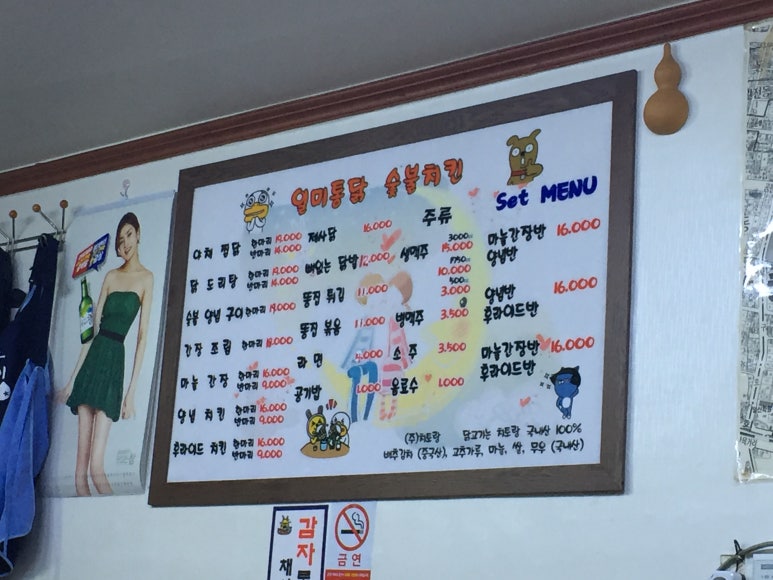 일미통닭 숯불치킨
Set MENU
야채 찜닭 한마리 19.000
반마리 14.000
닭 도리탕 한마리 19.000
반마리 14.000
숯불 양념 구이 한마리 19.000
간장 조림 한마리 18.000
마늘 간장 한마리 16.000
반마리 9.000
양념 치킨 한마리 16.000
반마리 9.000
후라이드 치킨 한마리 16.000
반마리 9.000
제사닭 16.000
뼈없는 닭발 12.000
똥집 튀김 11.000
똥집 볶음 11.000
라면 4.000
공기밥 1.000
주류
생맥주 3000cc 15.000
10.000
500cc 3.000
병맥주 3.500
소주 3.500
음료수 1.000
마늘간장반 16.000
양념반
양념반 16.000
후라이드반
마늘간장반 16.000
후라이드반
(주)치토랑 닭고기는 치토랑 국내산 100%
배추김치 (중국산), 고추가루, 마늘, 쌀, 무우 (국내산)
감자
금연